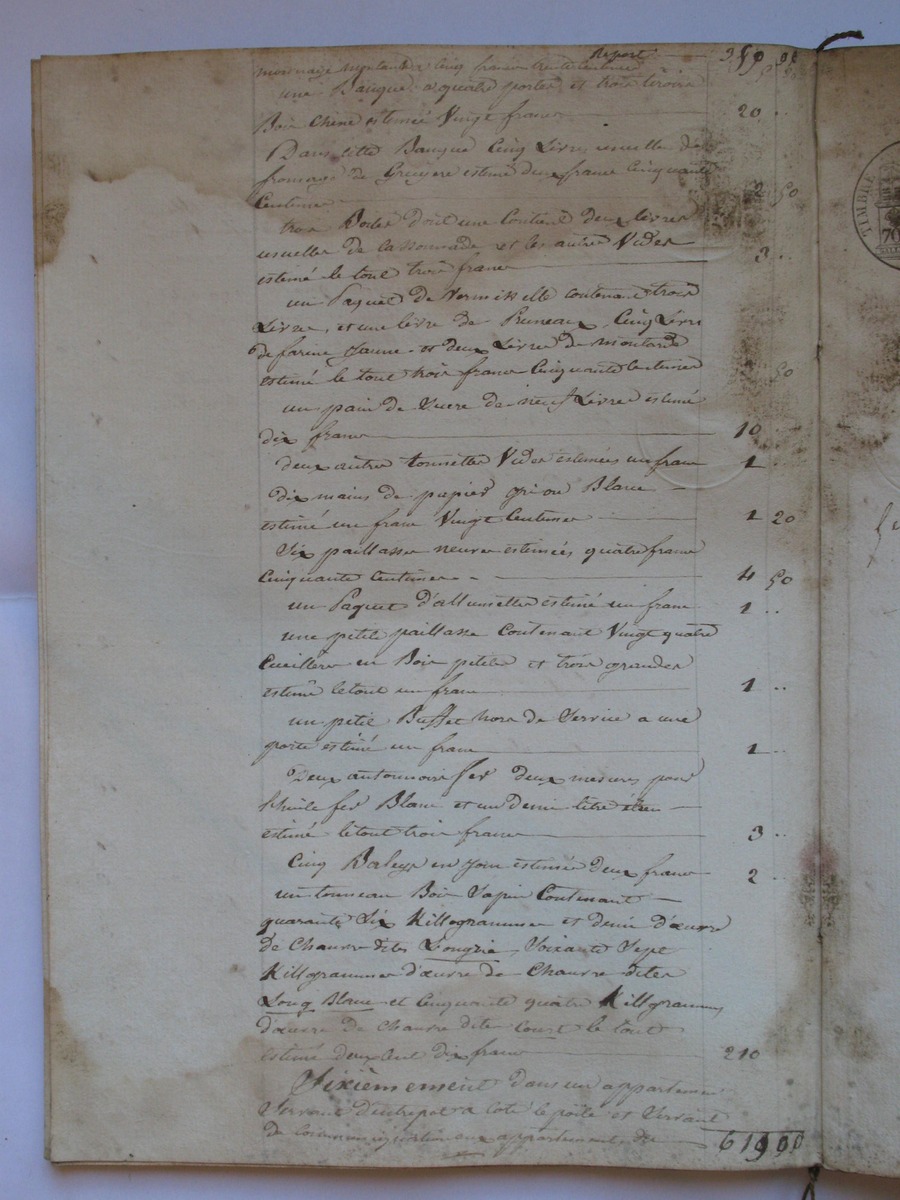 Report 359 90
monnaie montant à cinq francs trente centimes
une Banque a quatre portes et trois tiroirs
Bois Chêne estimée Vingt francs 20 ..
Dans cette Banque Cinq Livres usuelles de
fromage de Gruyere estimé deux francs Cinquante
Centimes 2 50
trois Boites dont une Contient deux livres
usuelles de Cassonnade et les autres Vides
estimé le tout trois francs 3 ..
un Paquet de Vermiselle contenant trois
Livres, et une livre de Pruneaux, Cinq Livres
de farine jaune et deux Livres de moutarde
estimé le tout trois francs Cinquante Centimes 3 50
un pain de Sucre de neuf Livres estimé
dix francs 10
deux autres tonnettes Vides estimées un franc 1
dix mains de papier gris ou Blanc
estimé un franc Vingt Centimes 1 20
Six paillasses neuves estimées quatre francs
Cinquante Centimes 4 50
un Paquet d'allumettes estimé un franc 1 ..
une petite paillasse Contenant Vingt quatre
Cueillers en Bois petites et trois grandes
estimé le tout un franc 1 ..
un petit Buffet hors de Service a une
porte estimé un franc 1 ..
Deux antonnoirs fer deux mesures pour
l'huile fer Blanc et un Demi litre
estimé le tout trois francs 3 ..
Cinq Baleys en jonc estimés Deux francs 2 ..
un tonneau Bois Sapin Contenant
quarante Six Killogrammes et demi d'œuvre
de Chanvre dites Longria, Soixante Sept
Killogrammes d'œuvre de Chanvre dites
Long Blanc et Cinquante quatre Killogrammes
d'œuvre de chanvre dites Court le tout
estimé deux Cent dix francs 210
Sixièmement Dans un appartement
Servant d'entrepot a coté le poële et Servant
de Communication aux appartements de
619 90
TIMBRE
70